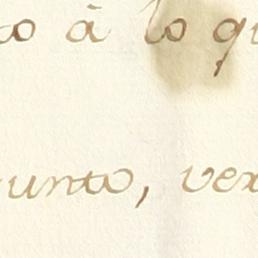 to à lo qu
punto, vex